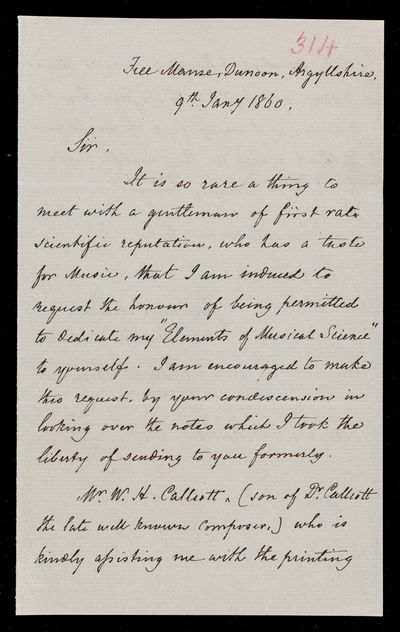 314
Free Manse, Dunoon, Argyllshire,
9th Jany 1860.
Sir,
It is so rare a thing to
meet with a gentleman of first rate
scientific reputation, who has a taste
for Music, that I am induced to
request the honour of being permitted
to dedicate my "Elements of Musical Science"
to yourself. I am encouraged to make
this request, by your condescension in
looking over the notes which I took the
liberty of sending to you formerly.
Mr. W. H. Callcott, (son of Dr. Callcott
the late well known composer,) who is
kindly assisting me with the printing